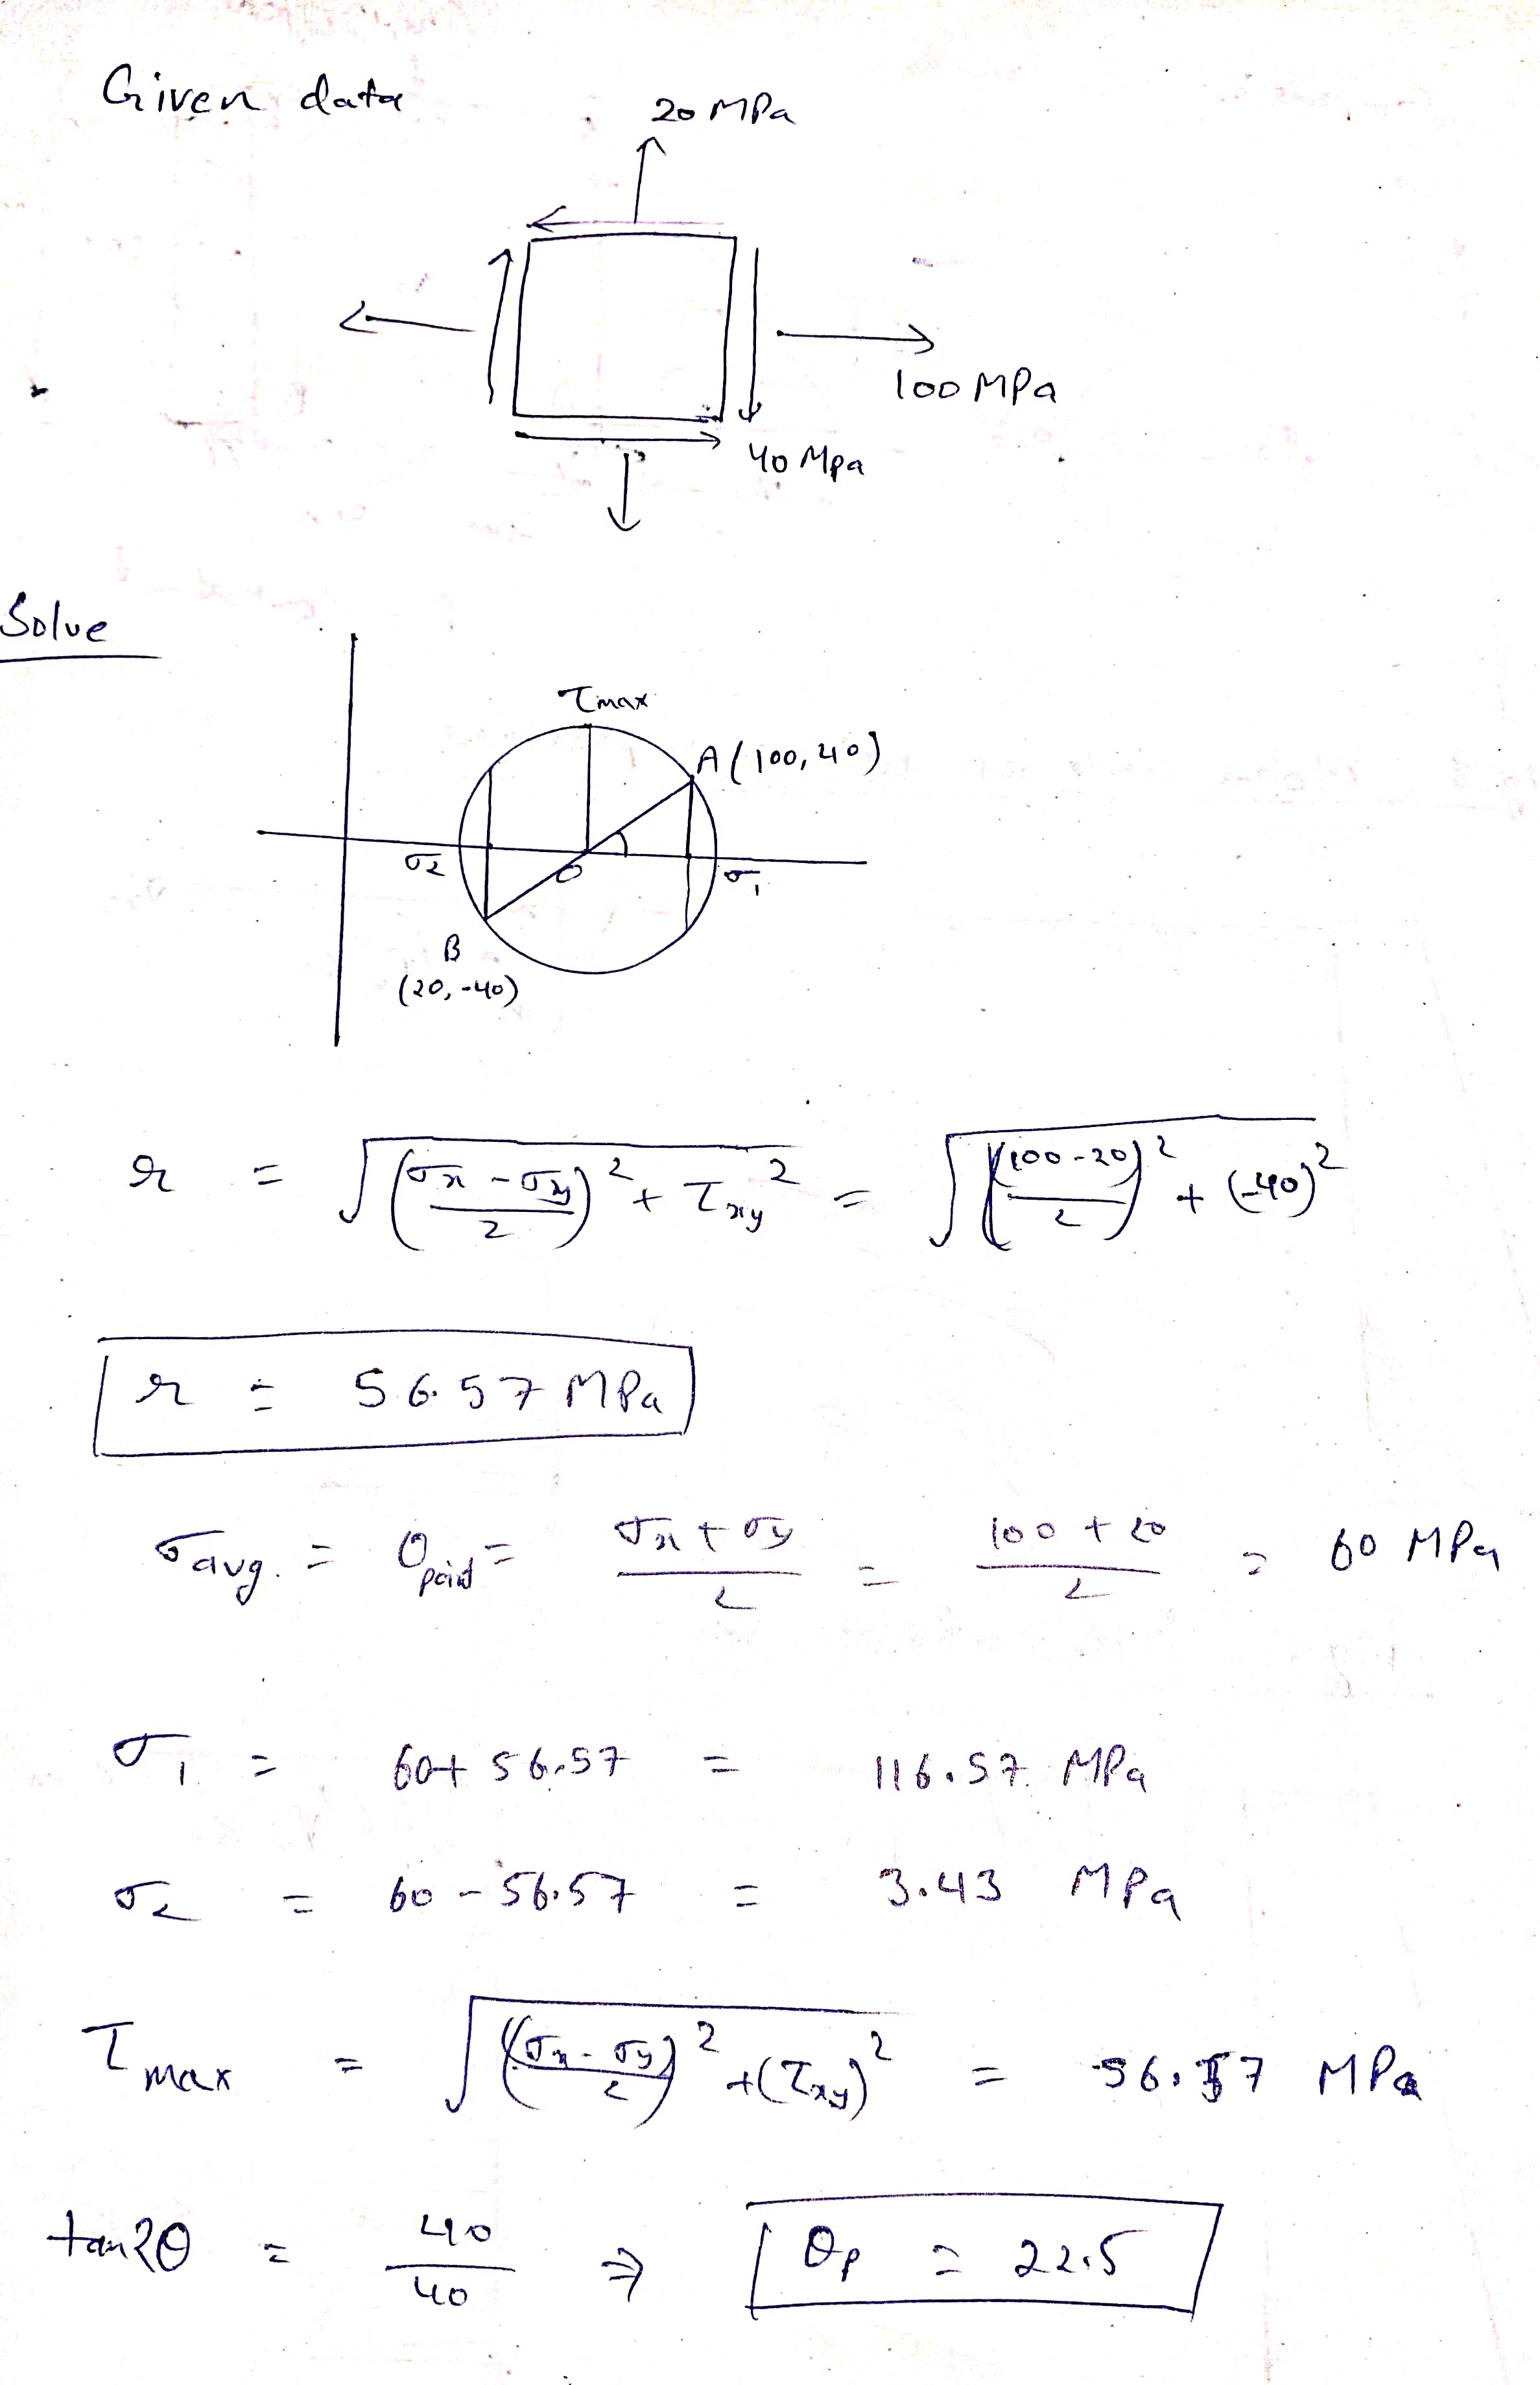 Given data
20 MPa
100 MPa
40 Mpa
Solve
τmax
A(100,40)
σ2
O
σ1
B
(20,-40)
r = √((σx - σy)/2)² + τxy² = √((100-20)/2)² + (-40)²
r = 56.57 MPa
σavg. = O point = (σx + σy)/2 = (100 + 20)/2 = 60 MPa
σ1 = 60+56.57 = 116.57 MPa
σ2 = 60 - 56.57 = 3.43 MPa
τmax = √((σx - σy)/2)² + (τxy)² = 56.57 MPa
tan2θ = 40/40 ⇒ θp = 22.5